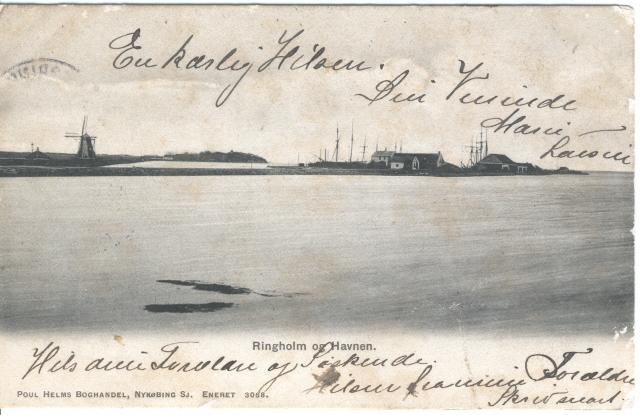 En kærlig Hilsen.
Din Veninde
Marie
Ringholm og Havnen.
Hils dine Forældre og Søskende.
Hilsen fra mine Forældre
Skriv snart.
POUL HELMS BOGHANDEL, NYKØBING SJ. ENERET 3068.